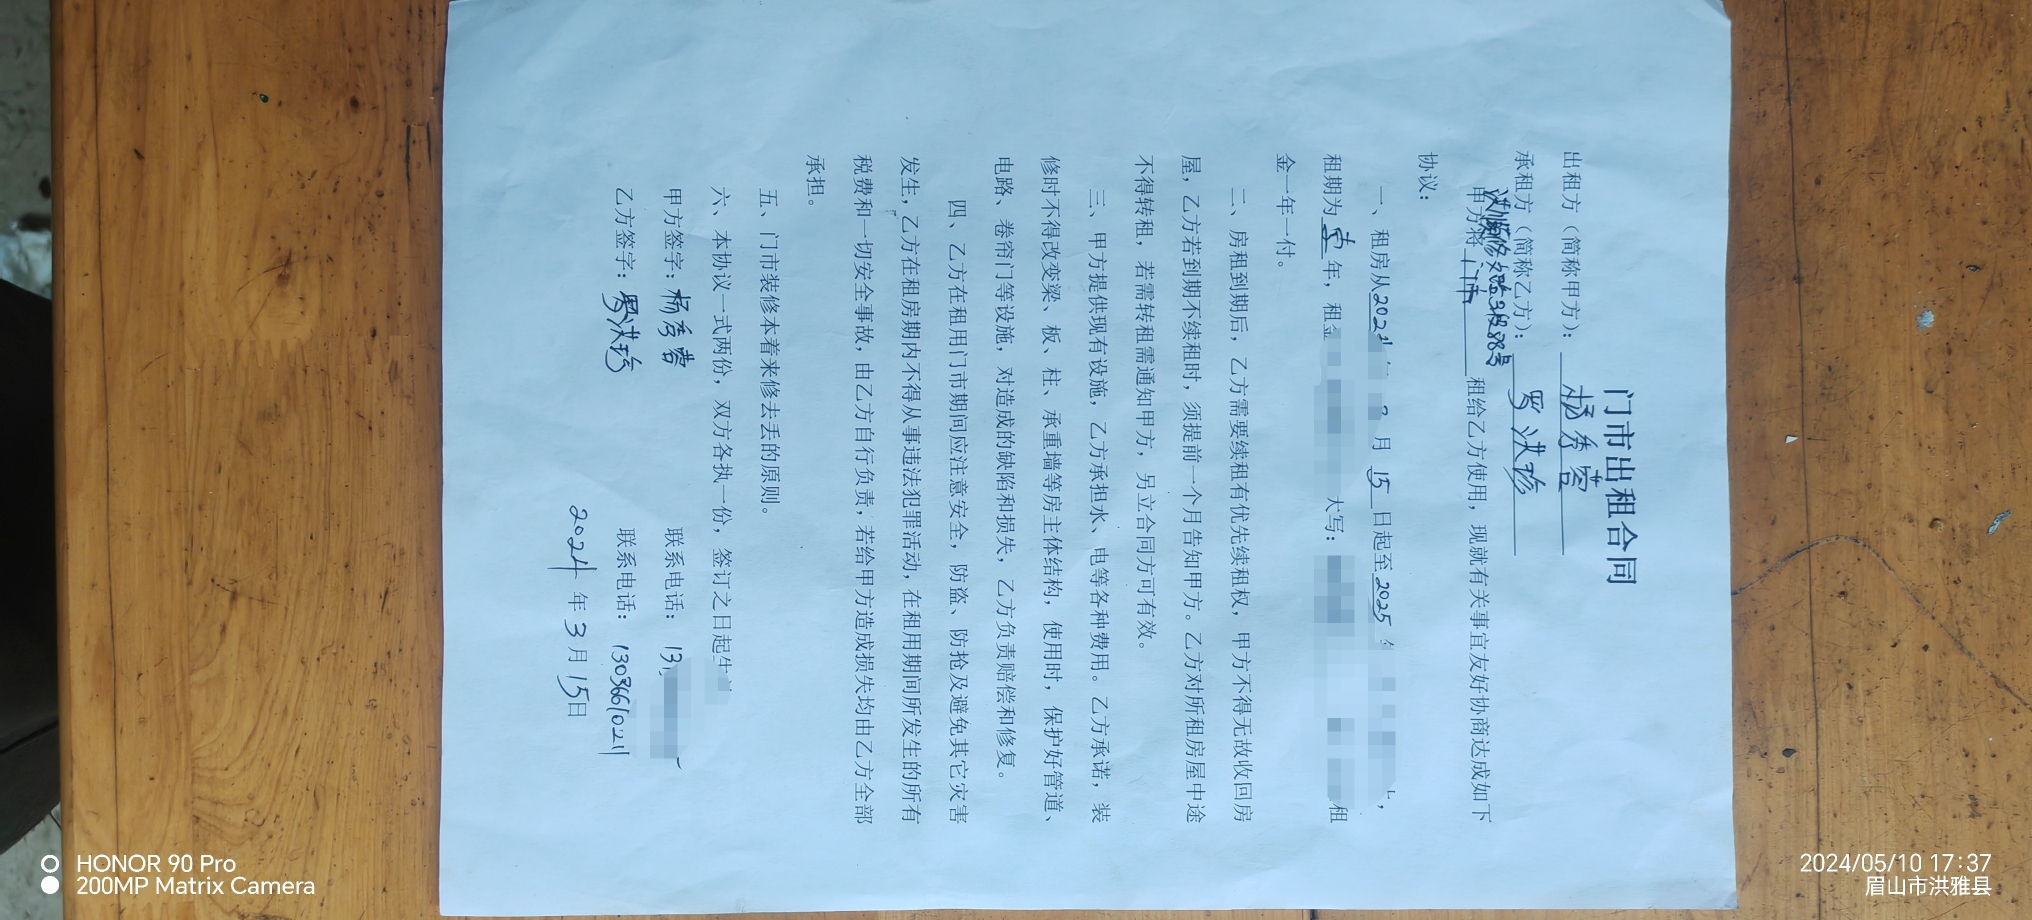 门市出租合同
出租方（简称甲方）：杨秀蓉
承租方（简称乙方）：罗洪珍
3段88号
甲方将 门市 租给乙方使用，现就有关事宜友好协商达成如下
协议：
一、租房从2021 月 15 日起至2025
租期为 壹 年，租金 大写： 租
金一年一付。
二、房租到期后，乙方需要续租有优先续租权，甲方不得无故收回房
屋，乙方若到期不续租时，须提前一个月告知甲方。乙方对所租房屋中途
不得转租，若需转租需通知甲方，另立合同方可有效。
三、甲方提供现有设施，乙方承担水、电等各种费用。乙方承诺，装
修时不得改变梁、板、柱、承重墙等房主体结构，使用时，保护好管道、
电路、卷帘门等设施，对造成的缺陷和损失，乙方负责赔偿和修复。
四、乙方在租用门市期间应注意安全，防盗、防抢及避免其它灾害
发生，乙方在租房期内不得从事违法犯罪活动，在租用期间所发生的所有
税费和一切安全事故，由乙方自行负责，若给甲方造成损失均由乙方全部
承担。
五、门市装修本着来修去丢的原则。
六、本协议一式两份，双方各执一份，签订之日起生
甲方签字：杨秀蓉 联系电话：13
乙方签字：罗洪珍 联系电话：13036661021
2024 年 3 月 15 日
HONOR 90 Pro
200MP Matrix Camera
2024/05/10 17:37
眉山市洪雅县